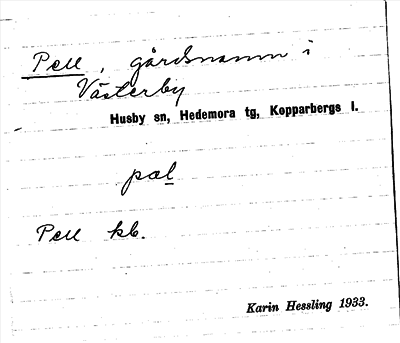 Pell, gårdsnamn i
Västerby
Husby sn, Hedemora tg, Kopparbergs l.
pæl
Pell kb.
Karin Hessling 1933.